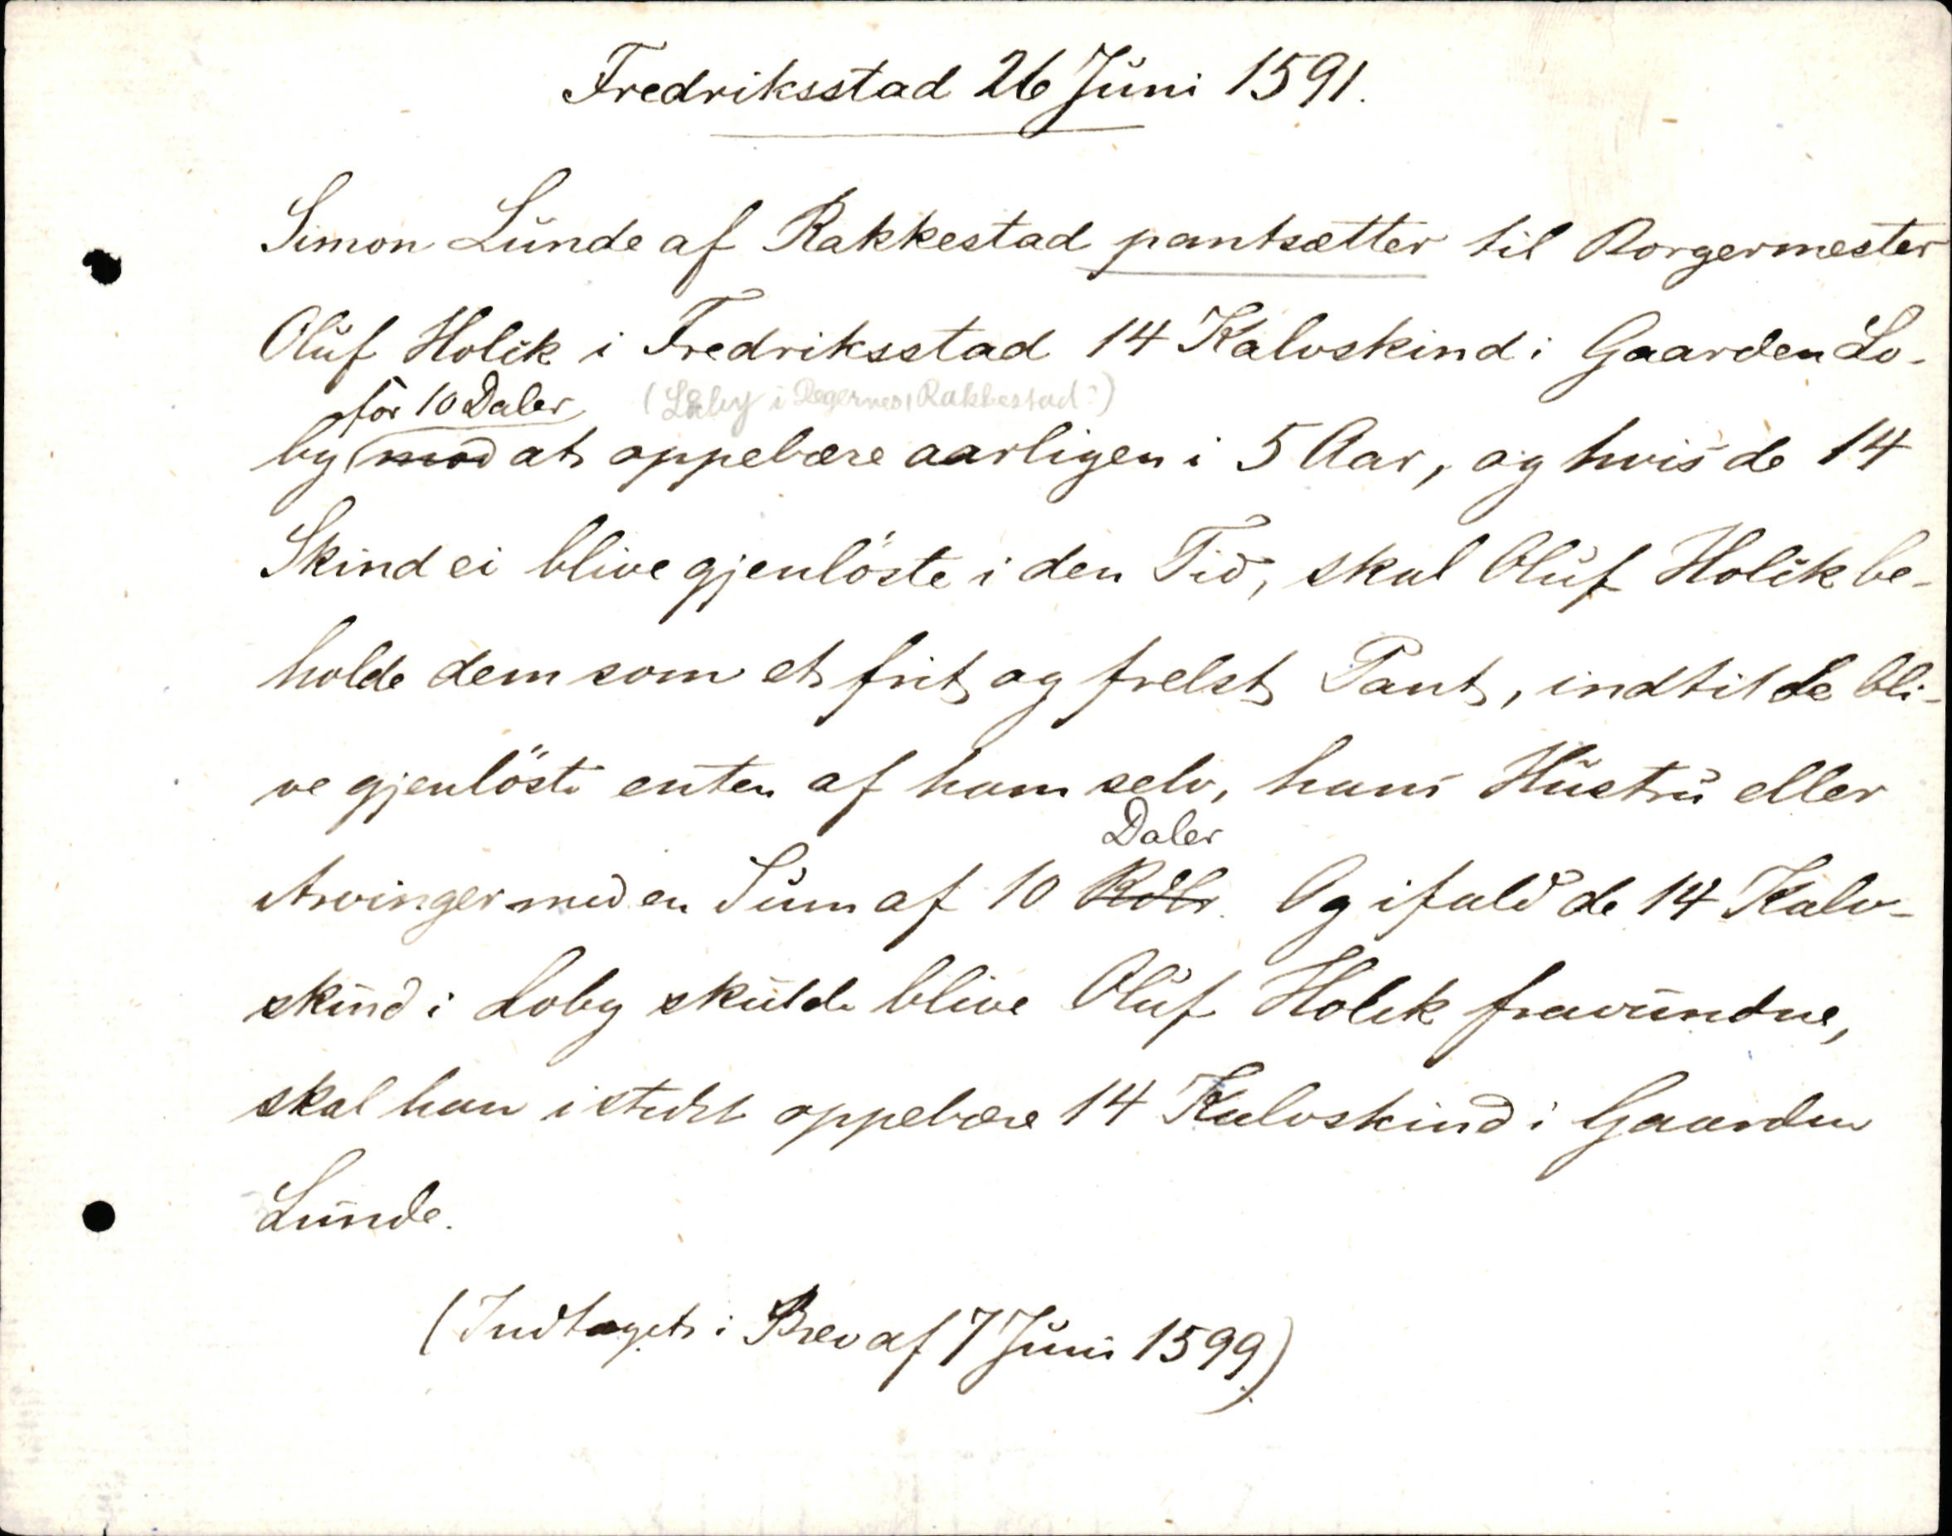 Fredriksstad 26 Juni 1591.
Simon Lunde af Rakkestad pantsætter til Borgermester
Oluf Holck i Fredriksstad 14 Kalvskind i Gaarden Lo-
for 10 Daler (Løby i Degernes, Rakkestad?)
by mod at oppebære aarligen i 5 Aar, og hvis de 14
Skind ei blive gjenlöste i den Tid, skal Oluf Holck be-
holde dem som et frit og frelst Pant, indtil de bli-
ve gjenlöste enten af ham selv, hans Hustru eller
Daler
Arvinger med en Sum af 10 Rdlr. Og ifald de 14 Kalv-
skind i Loby skulde blive Oluf Holck fravundne,
skal han istedet oppebære 14 Kalvskind i Gaarden
Lunde.
(Indtaget i Brev af 7 Juni 1599).